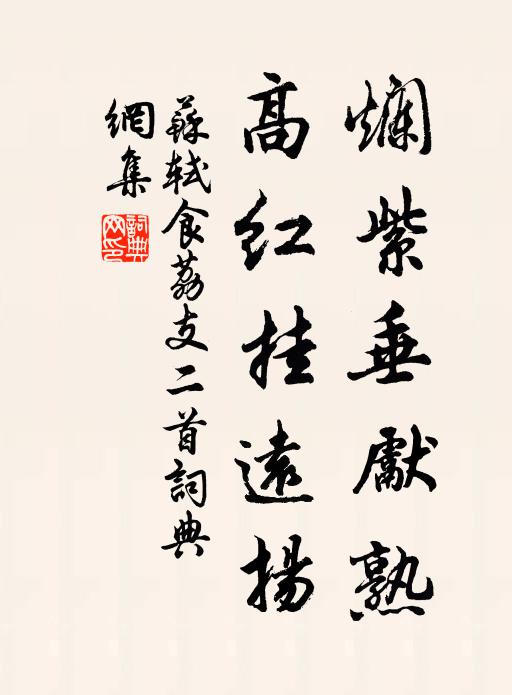 爛紫垂獻熟
高紅挂遠揚
蘇軾食荔支二首詞典
網集
詞典
網印